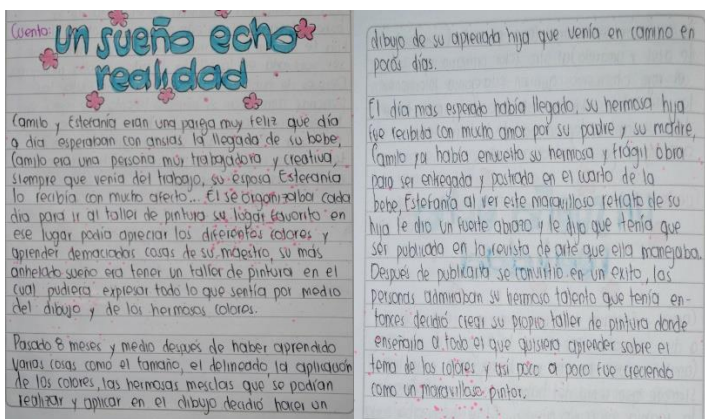 Cuento: Un sueño echo
realidad
Camilo y Estefanía eran una pareja muy feliz que día
a día esperaban con ansias la llegada de su bebe,
Camilo era una persona muy trabajadora y creativa,
siempre que venia del trabajo, su esposa Estefanía
lo recibía con mucho afecto... El se organizaba cada
día para ir al taller de pintura su lugar favorito en
ese lugar podía apreciar los diferentes colores y
aprender demaciadas cosas de su maestro, su más
anhelado sueño era tener un taller de pintura en el
cual pudiera expresar todo lo que sentía por medio
del dibujo y de los hermosos colores.
Pasado 8 meses y medio después de haber aprendido
varias cosas como el tamaño, el delineado, la aplicación
de los colores, las hermosas mesclas que se podían
realizar y aplicar en el dibujo decidió hacer un
dibujo de su apreciada hija que venía en camino en
pocos días.
El día mas esperado había llegado, su hermosa hija
fue recibida con mucho amor por su padre y su madre,
Camilo ya había envuelto su hermosa y frágil obra
para ser entregada y postrada en el cuarto de la
bebe, Estefanía al ver este maravilloso retrato de su
hija le dio un fuerte abrazo y le dijo que tenía que
ser publicado en la revista de arte que ella manejaba.
Después de publicarlo se convirtió en un exito, las
personas admiraban su hermoso talento que tenía en-
tonces decidió crear su propio taller de pintura donde
enseñaría a todo el que quisiera aprender sobre el
tema de los colores y así poco a poco fue creciendo
como un maravilloso pintor.